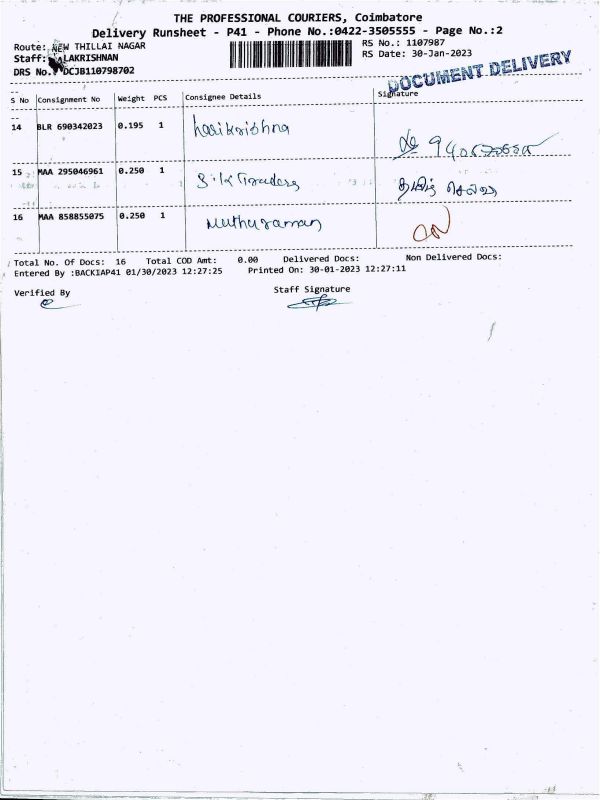 THE PROFESSIONAL COURIERS, Coimbatore
Delivery Runsheet - P41 - Phone No.:0422-3505555 - Page No.:2
Route: NEW THILLAI NAGAR
RS No.: 1107987
Staff: LAKRISHNAN
RS Date: 30-Jan-2023
DRS No. DCJB110798702
DOCUMENT DELIVERY
S No Consignment No Weight PCS Consignee Details Signature
14 BLR 690342023 0.195 1 harikrishna
15 MAA 295046961 0.250 1 Traders
16 MAA 858855075 0.250 1 Muthuraman
Total No. Of Docs: 16 Total COD Amt: 0.00 Delivered Docs: Non Delivered Docs:
Entered By :BACKIAP41 01/30/2023 12:27:25 Printed On: 30-01-2023 12:27:11
Verified By Staff Signature